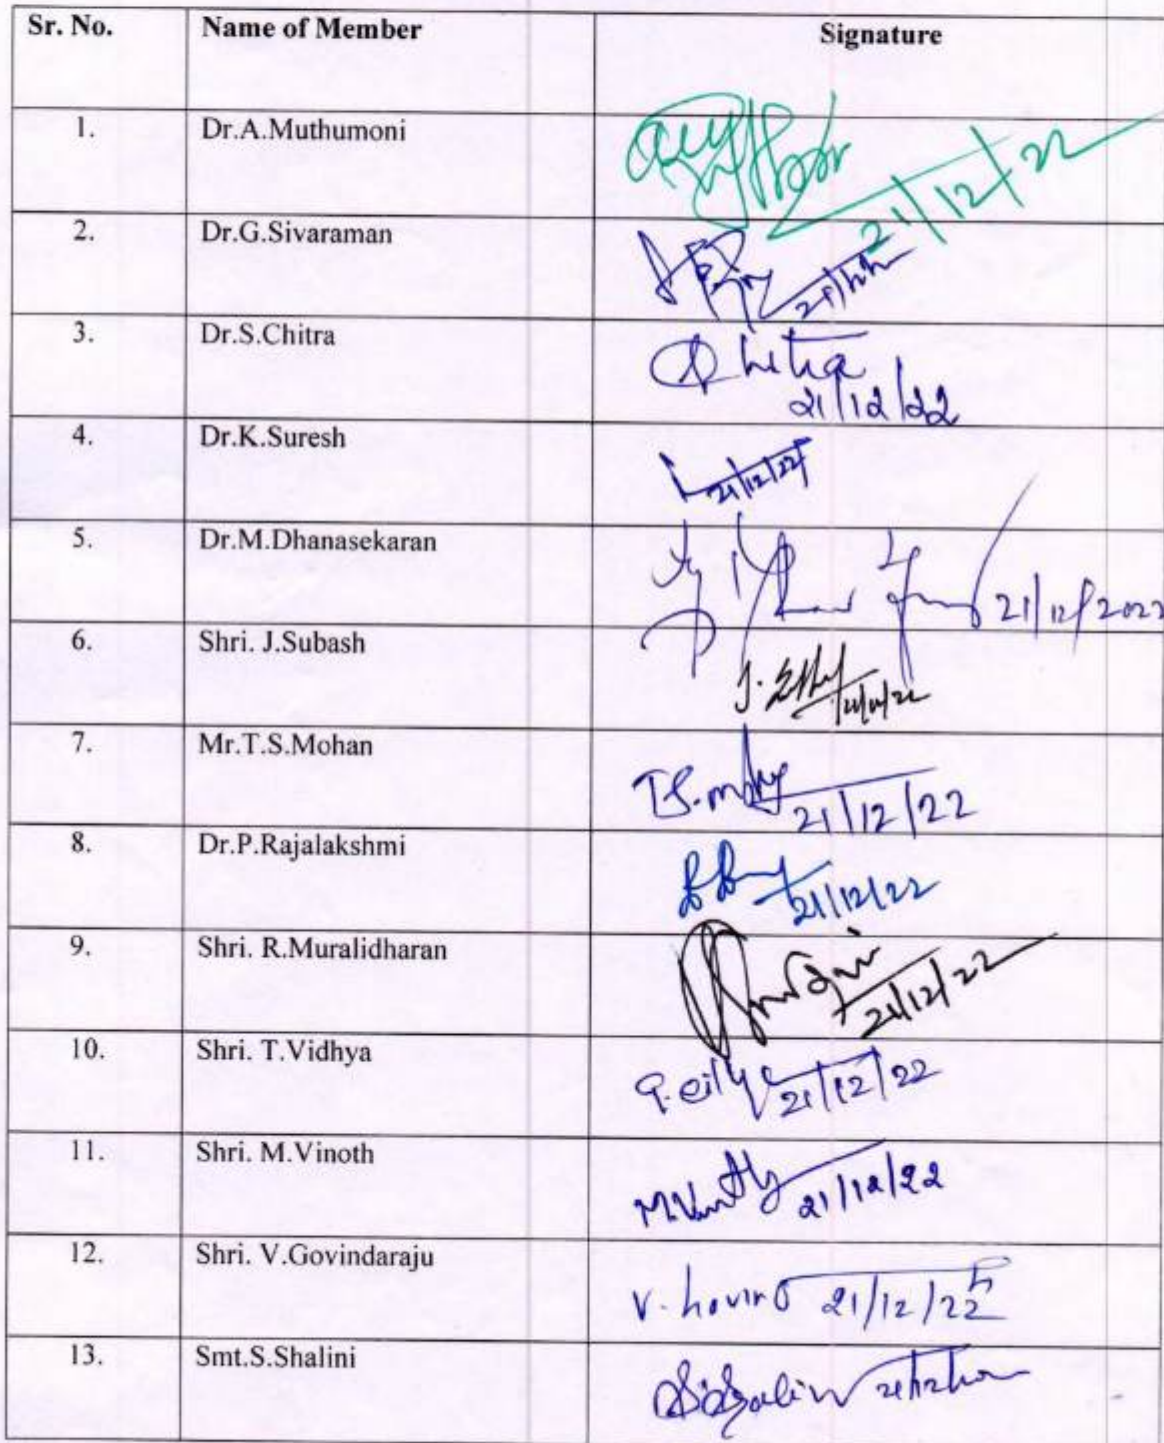 Sr. No. Name of Member Signature
1. Dr.A.Muthumoni
21/12/22
2. Dr.G.Sivaraman
3. Dr.S.Chitra Chitra
21/12/22
4. Dr.K.Suresh 21/12/22
5. Dr.M.Dhanasekaran 21/12/2022
6. Shri. J.Subash
7. Mr.T.S.Mohan T.S.
21/12/22
8. Dr.P.Rajalakshmi
21/12/22
9. Shri. R.Muralidharan
21/12/22
10. Shri. T.Vidhya 21/12/22
11. Shri. M.Vinoth 21/12/22
12. Shri. V.Govindaraju 21/12/22
13. Smt.S.Shalini